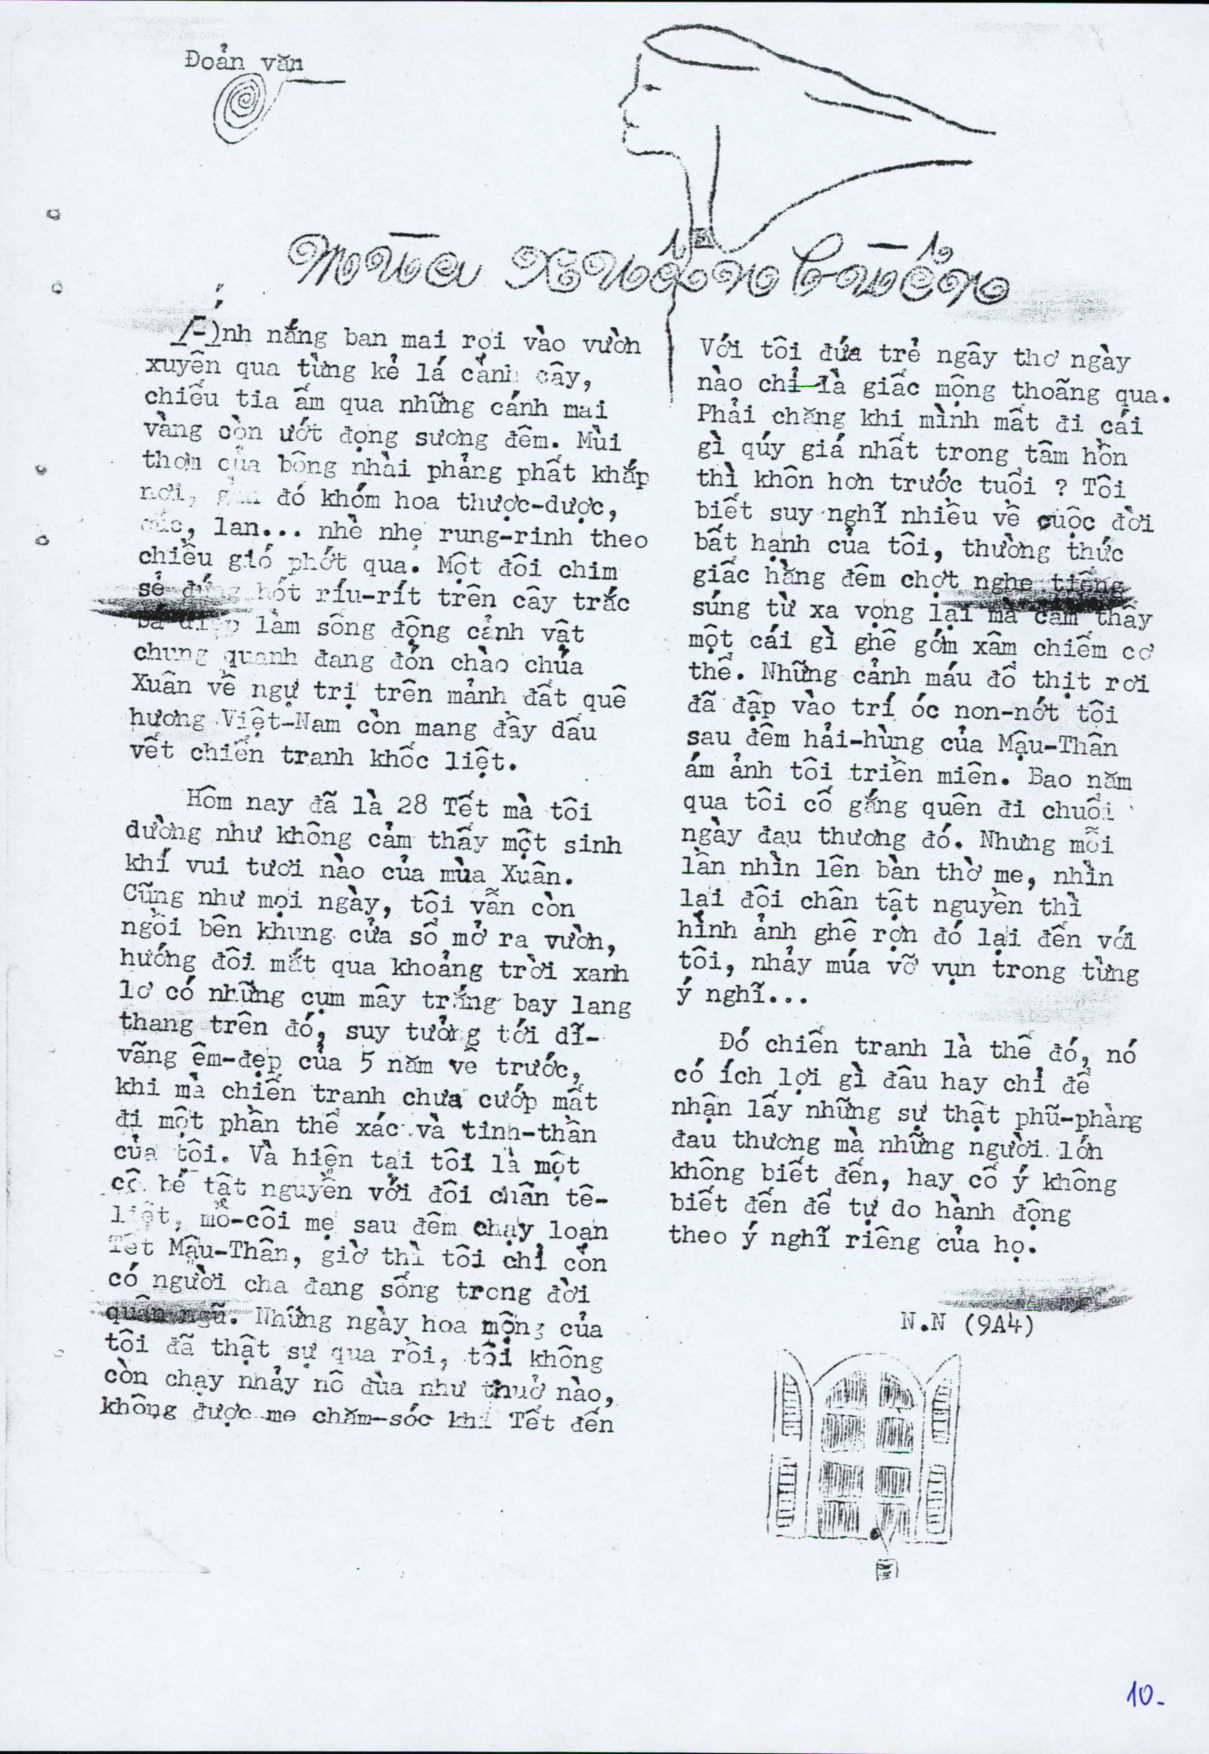 Đoản văn
Mùa Xuân buồn
Ánh nắng ban mai rọi vào vườn
xuyên qua từng kẻ lá cành cây,
chiếu tia ấm qua những cánh mai
vàng còn ướt đọng sương đêm. Mùi
thơm của bông nhài phảng phất khắp
nơi, gần đó khóm hoa thược-dược,
cúc, lan... nhè nhẹ rung-rinh theo
chiều gió phớt qua. Một đôi chim
sẻ đứng hót ríu-rít trên cây trắc
bá diệp làm sống động cảnh vật
chung quanh đang đón chào chúa
Xuân về ngự trị trên mảnh đất quê
hương Việt-Nam còn mang đầy dấu
vết chiến tranh khốc liệt.
Hôm nay đã là 28 Tết mà tôi
dường như không cảm thấy một sinh
khí vui tươi nào của mùa Xuân.
Cũng như mọi ngày, tôi vẫn còn
ngồi bên khung cửa sổ mở ra vườn,
hướng đôi mắt qua khoảng trời xanh
lơ có những cụm mây trắng bay lang
thang trên đó, suy tưởng tới dĩ-
vãng êm-đẹp của 5 năm về trước,
khi mà chiến tranh chưa cướp mất
đi một phần thể xác và tinh-thần
của tôi. Và hiện tại tôi là một
cô bé tật nguyền với đôi chân tê-
liệt, mồ-côi mẹ sau đêm chạy loạn
Tết Mậu-Thân, giờ thì tôi chỉ còn
có người cha đang sống trong đời
quân ngũ. Những ngày hoa mộng của
tôi đã thật sự qua rồi, tôi không
còn chạy nhảy nô đùa như thuở nào,
không được mẹ chăm-sóc khi Tết đến
Với tôi đứa trẻ ngây thơ ngày
nào chỉ là giấc mộng thoãng qua.
Phải chăng khi mình mất đi cái
gì qúy giá nhất trong tâm hồn
thì khôn hơn trước tuổi ? Tôi
biết suy nghĩ nhiều về cuộc đời
bất hạnh của tôi, thường thức
giấc hằng đêm chợt nghe tiếng
súng từ xa vọng lại mà cảm thấy
một cái gì ghê gớm xâm chiếm cơ
thể. Những cảnh máu đổ thịt rơi
đã đập vào trí óc non-nớt tôi
sau đêm hải-hùng của Mậu-Thân
ám ảnh tôi triền miên. Bao năm
qua tôi cố gắng quên đi chuỗi
ngày đau thương đó. Nhưng mỗi
lần nhìn lên bàn thờ mẹ, nhìn
lại đôi chân tật nguyền thì
hình ảnh ghê rợn đó lại đến với
tôi, nhảy múa vỡ vụn trong từng
ý nghĩ...
Đó chiến tranh là thế đó, nó
có ích lợi gì đâu hay chỉ để
nhận lấy những sự thật phũ-phàng
đau thương mà những người lớn
không biết đến, hay cố ý không
biết đến để tự do hành động
theo ý nghĩ riêng của họ.
N.N (9A4)
10.